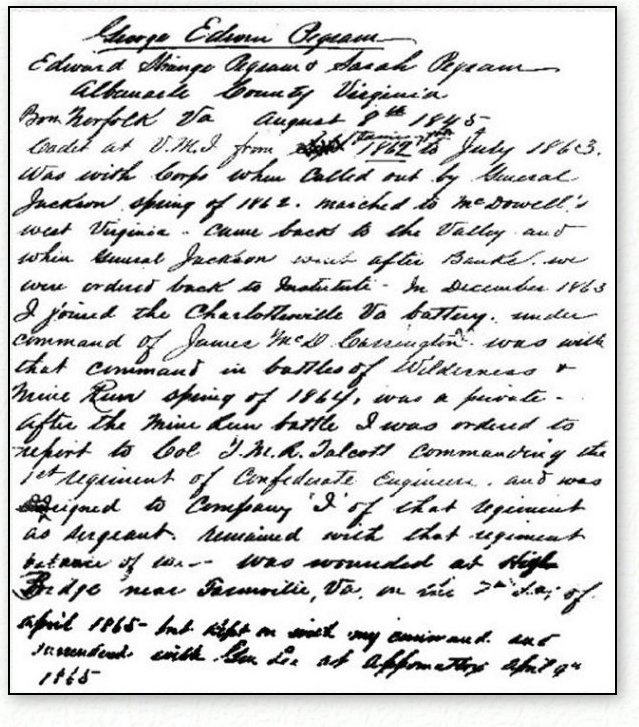 George Edwin Pegram
Edward Strange Pegram & Sarah Pegram
Albemarle County Virginia
Born Norfolk Va August 8th 1845
Cadet at V.M.I from 1862 to July 1863.
Was with Corps when Called out by General
Jackson spring of 1862. marched to McDowell's
west Virginia - Came back to the Valley and
when General Jackson went after Banks. we
were ordered back to Institute - In December 1863
I joined the Charlottesville Va battery. under
command of James McD Carrington. was with
that command in battles of Wilderness &
Mine Run spring of 1864, was a private -
After the Mine Run battle I was ordered to
report to Col T.M.R. Talcott Commanding the
1st regiment of Confederate Engineers. and was
assigned to Company "I" of that regiment
as sergeant. remained with that regiment
balance of war - was wounded at High
Bridge near Farmville, Va, on the 7th day of
April 1865 - but kept on with my command and
surrendered with Gen Lee at Appomattox April 9th
1865